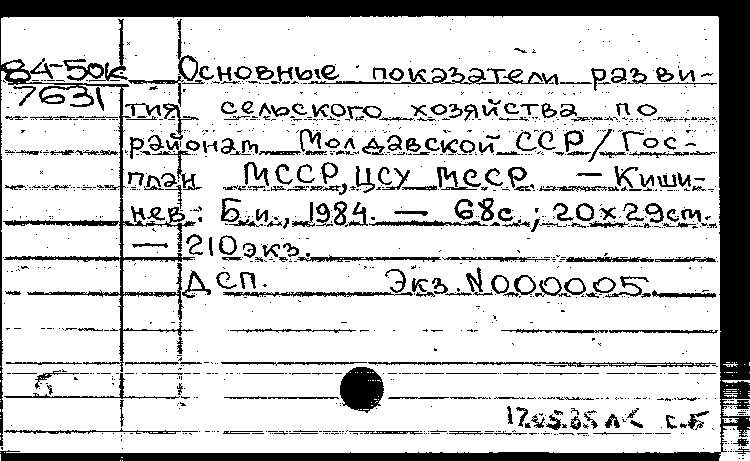 84-50к Основные показатели разви-
7631 тия сельского хозяйства по
районам Молдавской ССР/Гос-
план МССР, ЦСУ МССР. — Киши-
нев: Б.и., 1984. — 68с.; 20х29см.
— 210экз.
ДСП. Экз. N000005.
17.05.85 с.Б